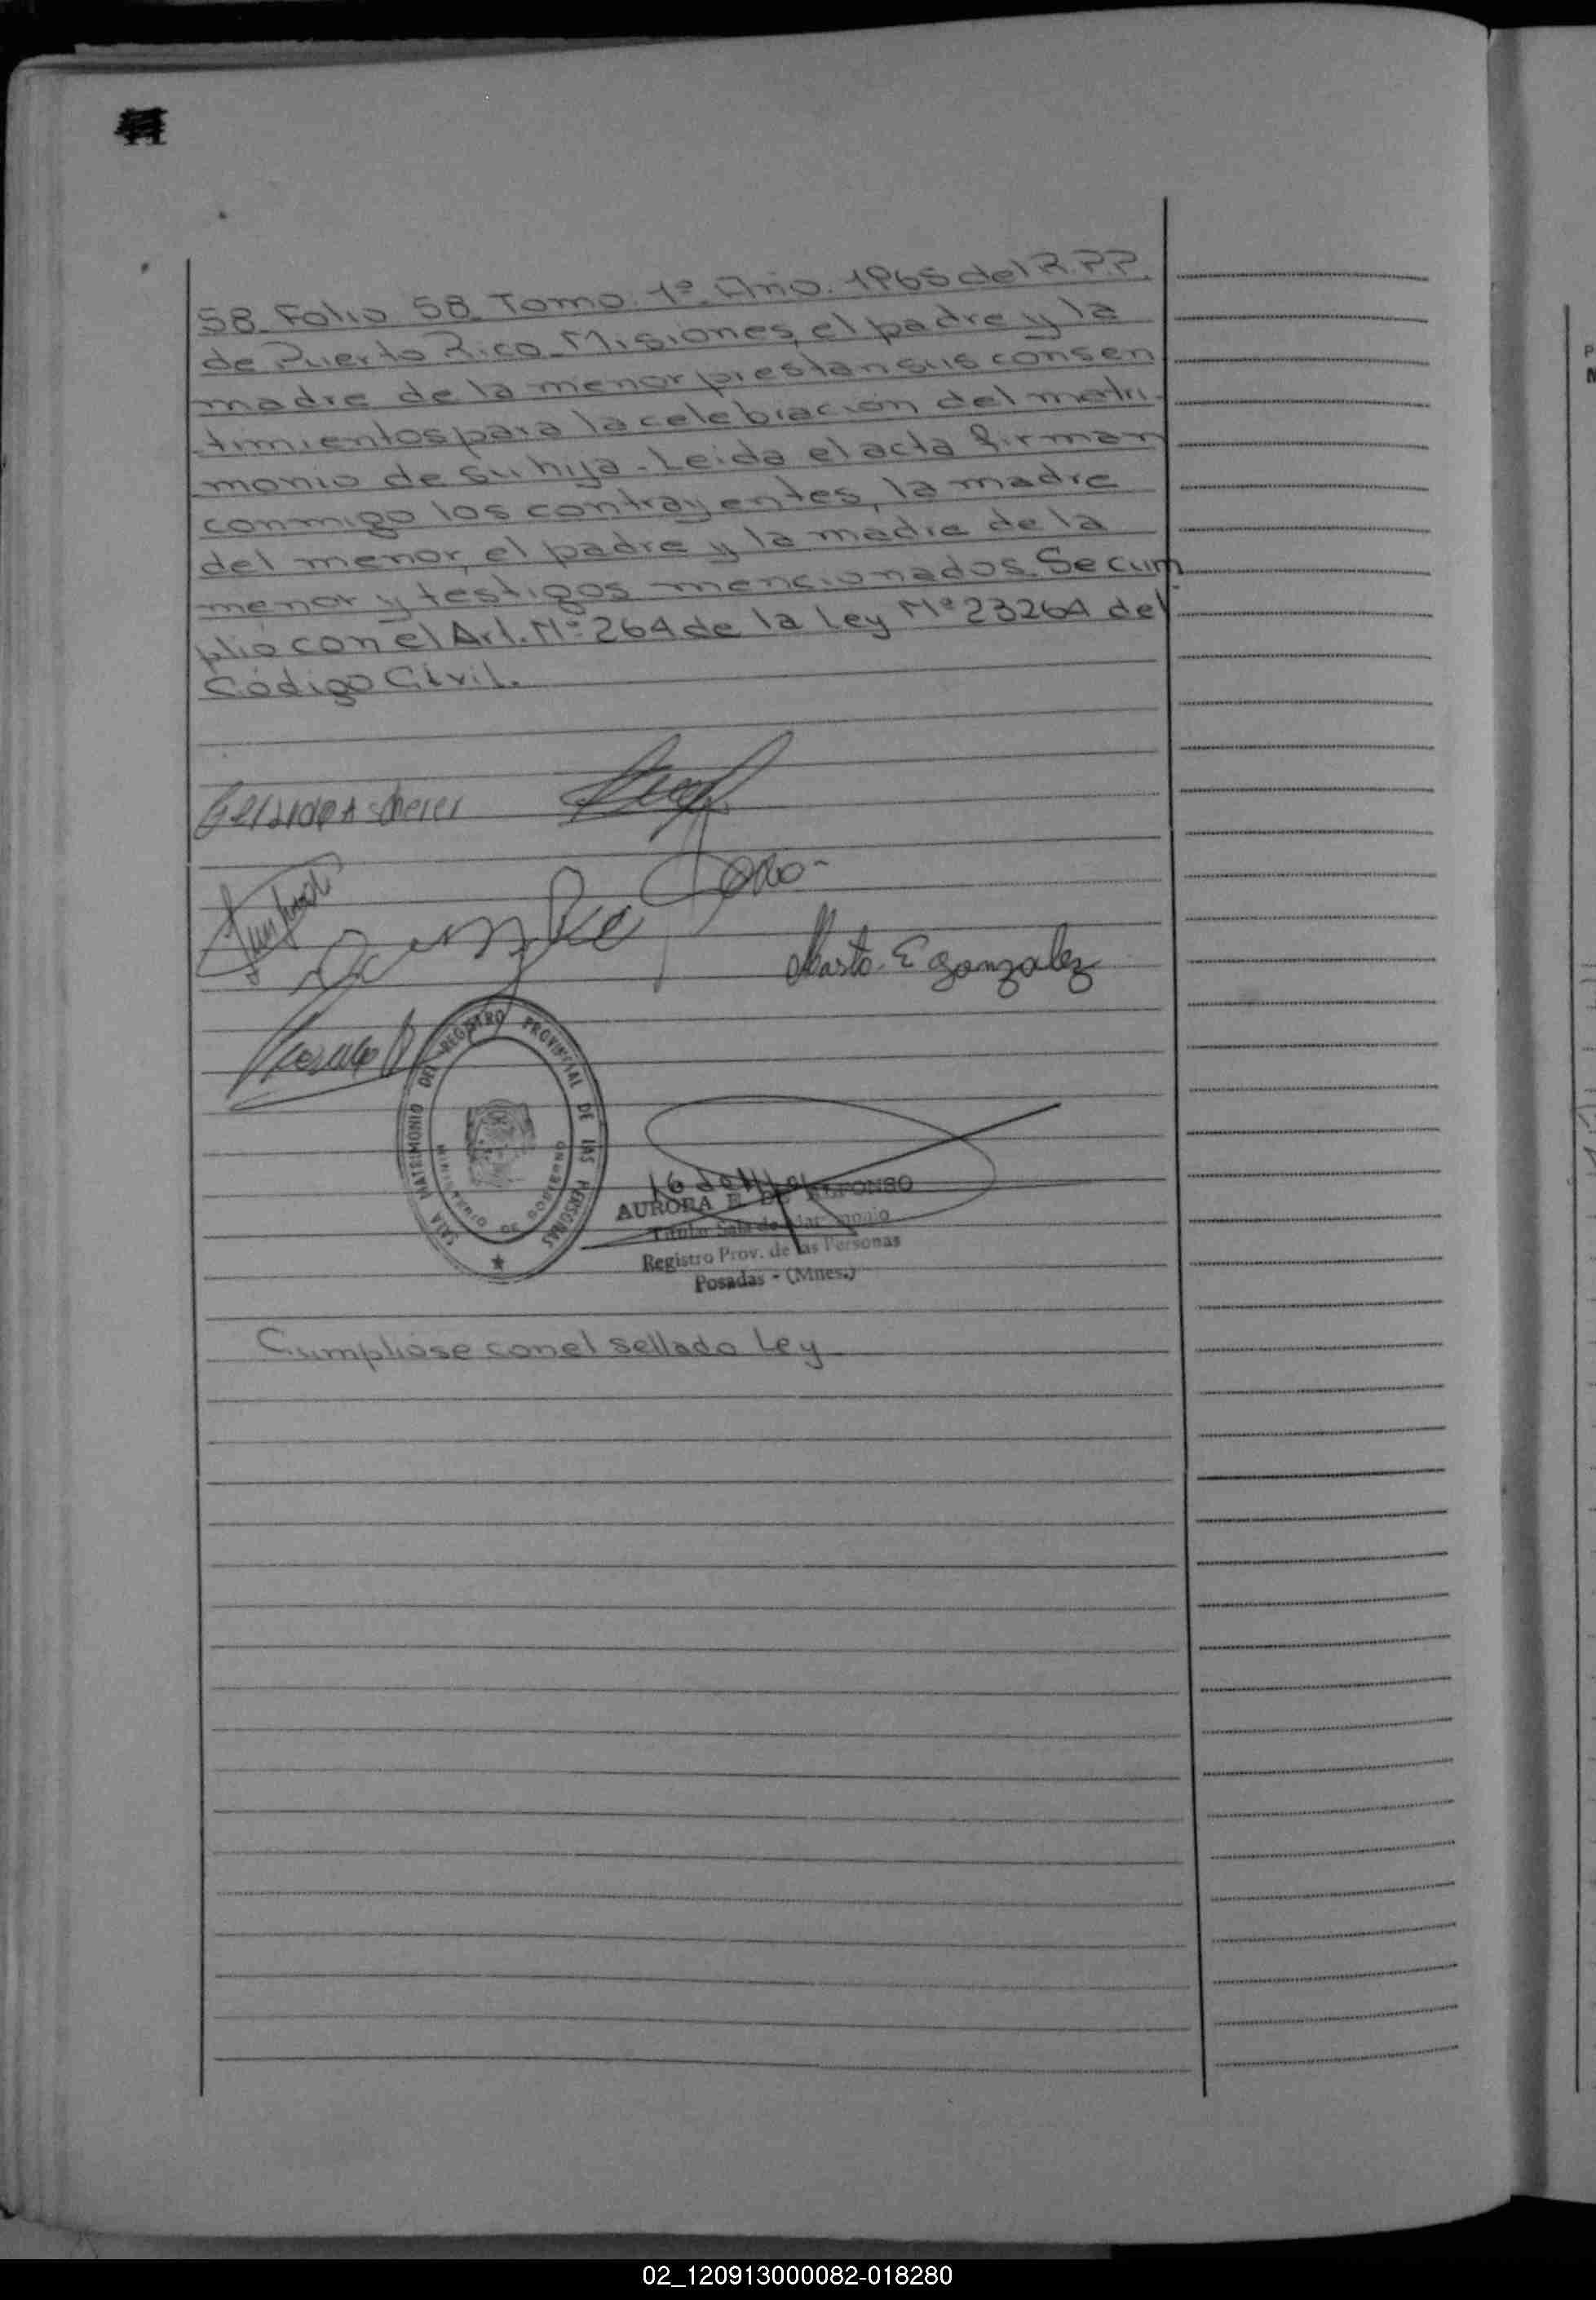 58. Folio 58. Tomo. 1º. Año. 1965 del R.P.P.
de Puerto Rico. Misiones, el padre y la
madre de la menor prestan sus consen
timientos para la celebración del matri-
monio de su hija. Leida el acta firman
conmigo los contrayentes, la madre
del menor, el padre y la madre de la
menor y testigos mencionados. Se cum
plió con el Art. Nº 264 de la Ley Nº 23264 del
Código Civil.
Marta. E Gonzalez
SALA MATRIMONIO DEL REGISTRO PROVINCIAL DE LAS PERSONAS
MINISTERIO DE GOBIERNO
AURORA E. DE ALFONSO
Titular Sala de Matrimonio
Registro Prov. de las Personas
Posadas - (Mnes.)
Cumplióse con el sellado Ley
02_120913000082-018280